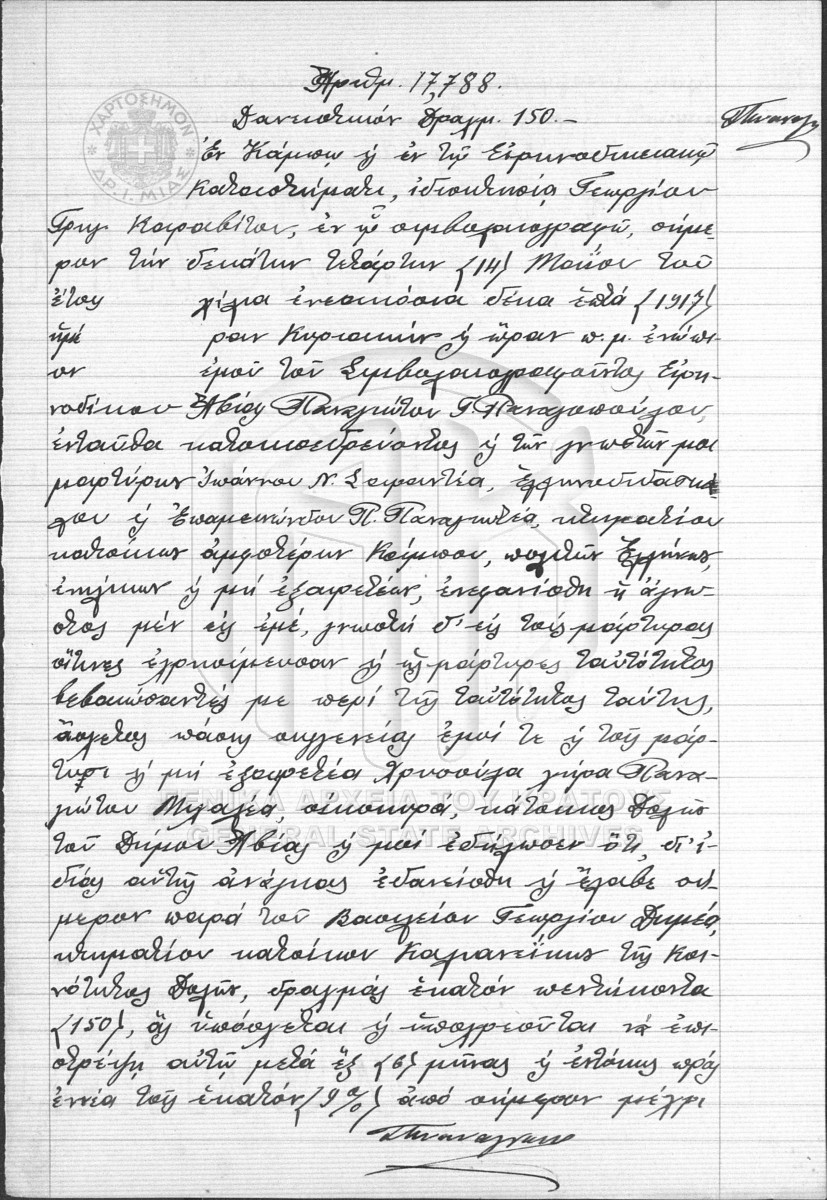 Ἀριθμ. 17,788.
Δανειστικόν Δραχμ. 150.–
ΧΑΡΤΟΣΗΜΟΝ
ΔΡ. 1. ΜΙΑΣ
Ἐν Κάμπῳ ἤ ἐν τῷ Εἰρηνοδικειακῷ
καταστήματι, ἰδιοκτησίᾳ Γεωργίου
Γρηγ. Καραβίτου, ἐν ᾧ συμβολαιογραφῶ, σήμε-
ρον τήν δεκάτην τετάρτην (14) Μαΐου τοῦ
ἔτου χίλια ἐνεακόσια δέκα ἑπτά (1917)
ἡμέ ραν Κυριακήν ἤ ὥραν π.μ. ἐνώπι-
ον ἐμοῦ τοῦ Συμβολαιογραφοῦντος Εἰρη-
νοδίκου Ἀβίας Παναγιώτου Γ. Παναγοπούλου,
ἐνταῦθα κατοικοεδρεύοντος ἤ τῶν γνωστῶν μοι
μαρτύρων Ἰωάννου Ν. Σαραντέα, ἑλληνοδιδασκά
λου ἤ Ἐπαμεινώνδου Π. Παναγιωτέα, κτηματίου
κατοίκων ἀμφοτέρων Κάμπου, πολιτῶν Ἑλλήνων,
ἐνηλίκων ἤ μή ἐξαιρετέων, ἐνεφανίσθη ἡ ἄγνω-
στος μέν εἰς ἐμέ, γνωστή δ' εἰς τούς μάρτυρας
οἵτινες ἐχρησίμευσαν ἤ ὡς μάρτυρες ταὐτότητος
βεβαιώσαντές με περί τῆς ταὐτότητος ταύτης,
ἄσχετος πάσης συγγενείας ἐμοί τε ἤ τοῖς μάρ-
τυσι ἤ μή ἐξαιρετέα Χρυσούλα χήρα Πανα-
γιώτου Μιχαλέα, οἰκοκυρά, κάτοικος Δολῶν
τοῦ Δήμου Ἀβίας ἤ μοί ἐδήλωσεν ὅτι δι' ἰ-
δίας αὐτῆς ἀνάγκας ἐδανείσθη ἤ ἔλαβε σή-
μερον παρά τοῦ Βασιλείου Γεωργίου Δημέα,
κτηματίου κατοίκου Καλιανείκων τῆς Κοι-
νότητος Δολῶν, δραχμάς ἑκατόν πεντήκοντα
(150), ἅς ὑπόσχεται ἤ ὑποχρεοῦται νά ἐπι-
στρέψῃ αὐτῷ μετά ἕξ (6) μῆνας ἤ ἐντόκως πρός
ἐννέα τοῖς ἑκατόν (9%) ἀπό σήμερον μέχρι
ΓΕΝΙΚΑ ΑΡΧΕΙΑ ΤΟΥ ΚΡΑΤΟΥΣ
GENERAL STATE ARCHIVES